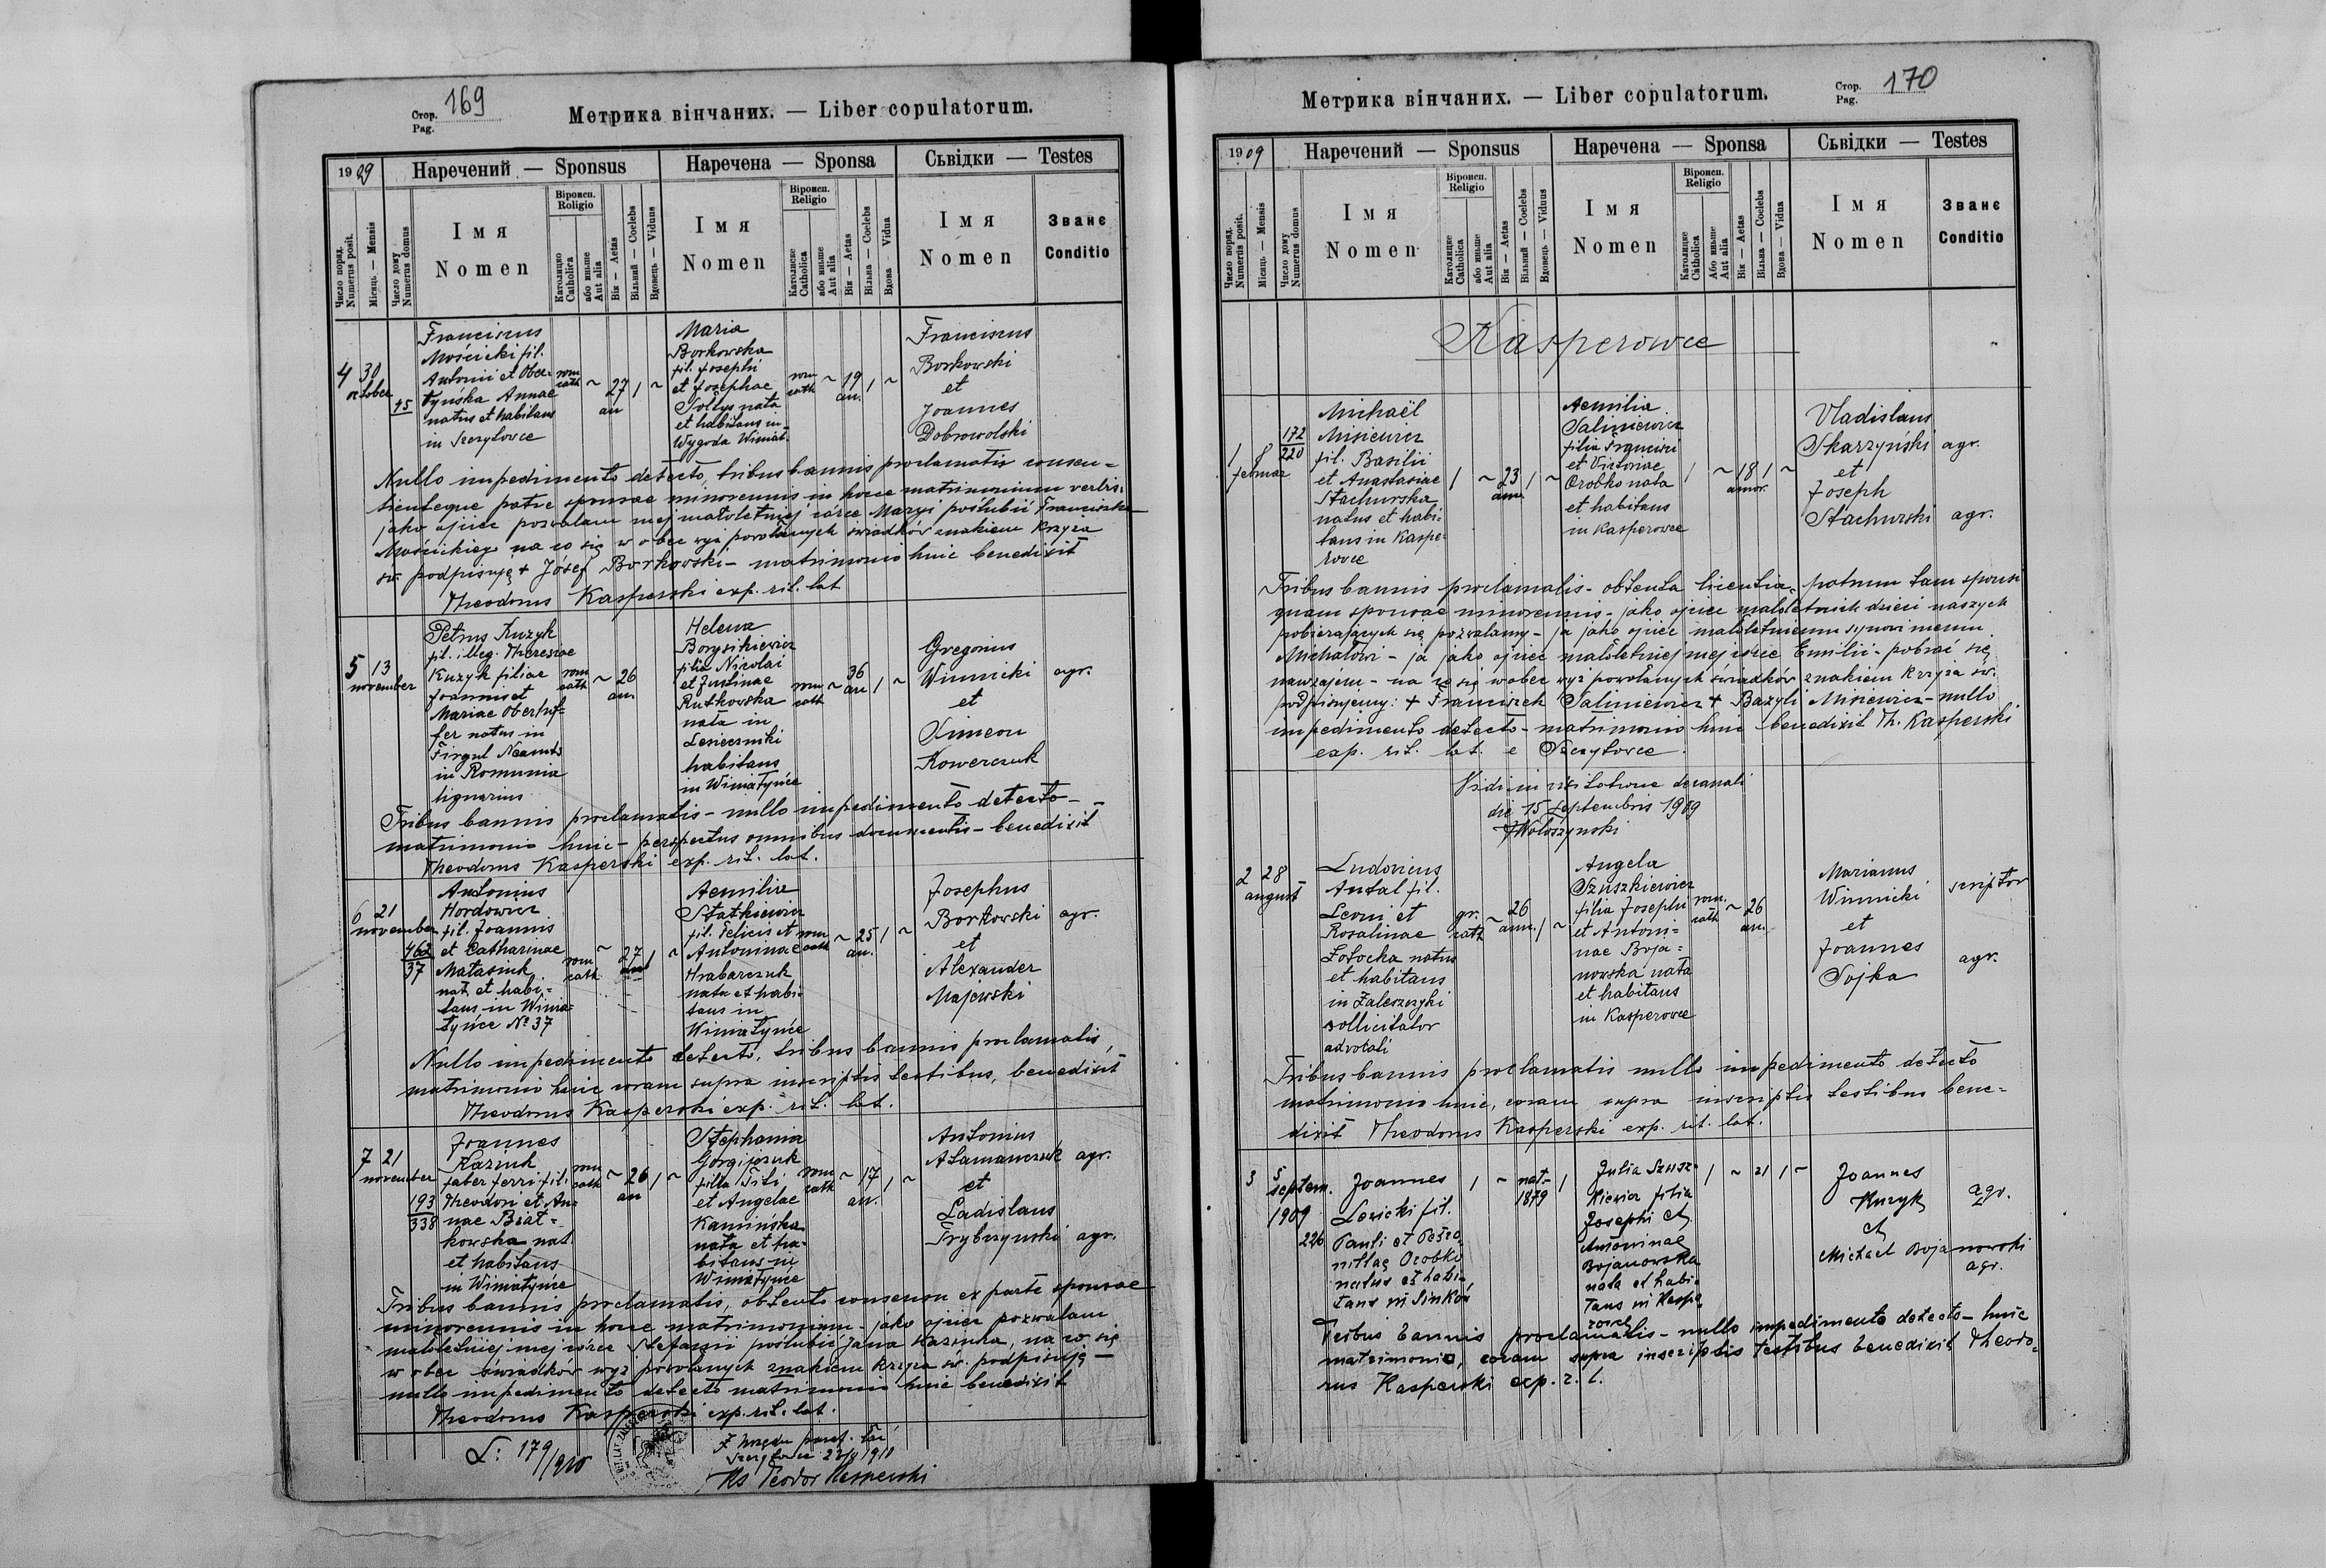 Стор. 169
Pag.
Метрика вінчаних. — Liber copulatorum.
1909
Наречений — Sponsus
Наречена — Sponsa
Сьвідки — Testes
Число поряд.
Numerus posit.
Місяць — Mensis
Число дому
Numerus domus
Імя
Nomen
Віроисп.
Religio
Католицке
Catholica
або иньше
Aut alia
Вік — Aetas
Вільний — Coelebs
Вдовець — Viduus
Імя
Nomen
Віроисп.
Religio
Католиске
Catholica
або иньше
Aut alia
Вік — Aetas
Вільна — Coelebs
Вдова Vidua
Імя
Nomen
Званє
Conditio
4 30
october
45
Franciscus
Mościcki fil.
Antonii et Ober-
tyńska Annae
natus et habitans
in Szczytowce
rom
cath
~
27
an
1
~
Maria
Borkowska
fil. Josephi
et Josephae
Soltys nata
et habitans in
Wygoda Winiat.
rom
cath
~
19
an.
1
~
Franciscus
Borkowski
et
Joannes
Dobrowolski
Nullo impedimento detecto, tribus bannis proclamatis consen-
tienteque patre sponsae minorennis in hocce matrimonium verbis:
jako ojciec pozwalam mej małoletniej córce Maryi poślubić Franciszka
Mościckiego na co się w obec wyż powołanych świadków znakiem krzyża
św. podpisuję + Józef Borkowski - matrimonio huic benedixit
Theodorus Kasperski exp. rit. lat
5 13
november
Petrus Kuzyk
fil. illeg. Theresiae
Kuzyk filiae
Joannis et
Mariae Obertuf-
fer natus in
Firgul Neamts
in Romunia
lignarius
rom
cath
~
26
an.
Helena
Borysikiewicz
filia Nicolai
et Justinae
Rutkowska
nata in
Lesieczniki
habitans
in Winiatyńce
rom
cath
~
36
an
1
~
Gregorius
Winnicki agr.
et
Simeon
Kowerczuk
Tribus bannis proclamatis - nullo impedimento detecto -
matrimonio huic - perspectus omnibus documentis - benedixit
Theodorus Kasperski exp. rit. lat.
6 21
november
462
37
Antonius
Hordowicz
fil. Joannis
et Catharinae
Matasiuk
nat. et habi-
tans in Winia-
tyńce No 37
rom
cath
~
27
an
1
~
Aemilia
Statkiewicz
fil. Felicis et
Antoninae
Hrabarczuk
nata et habi-
tans in
Winiatyńce
rom
cath
~
25
an.
1
~
Josephus
Borkowski agr.
et
Alexander
Majewski
Nullo impedimento detecto, tribus bannis proclamatis,
matrimonio huic coram supra inscriptis testibus, benedixit
Theodorus Kasperski exp. rit. lat.
7 21
november
193
338
Joannes
Kaziuk
faber ferri fil.
Theodori et An-
nae Brat-
kowska nat.
et habitans
in Winiatyńce
rom
cath
~
26
an
1
~
Stephania
Gorgijczuk
filia Titi
et Angelae
Kamińska
nata et ha-
bitans in
Winiatyńce
rom
cath
~
17
an.
1
~
Antonius
Atamanczuk agr.
et
Ladislaus
Trybrzynski agr.
Tribus bannis proclamatis, obtento consensu ex parte sponsae
minorennis in hocce matrimonium - jako ojciec pozwalam
małoletniej mej córce Stefanii poślubić Jana Kaziuka, na co się
w obec świadków wyż powołanych znakiem krzyża św. podpisuję -
nullo impedimento detecto matrimonio huic benedixit
Theodorus Kasperski exp. rit. lat.
L: 179/910
Z Urzędu paraf. łać
Szczytowce 1910
Ks Teodor Kasperski
Стор. 170
Pag.
Метрика вінчаних. — Liber copulatorum.
1909
Наречений — Sponsus
Наречена — Sponsa
Сьвідки — Testes
Число поряд.
Numerus posit.
Місяць — Mensis
Число дому
Numerus domus
Імя
Nomen
Віроисп.
Religio
Католицке
Catholica
або иньше
Aut alia
Вік — Aetas
Вільний — Coelebs
Вдовець — Viduus
Імя
Nomen
Віроисп.
Religio
Католицке
Catholica
Або иньше
Aut alia
Вік — Aetas
Вільна — Coelebs
Вдова — Vidua
Імя
Nomen
Званє
Conditio
Kasperowce
1 8
februar
172
220
Michaël
Misiewicz
fil. Basilii
et Anastasiae
Stachurska
natus et habi-
tans in Kaspe-
rovce
1
~
23
ann.
1
~
Aemilia
Saliniewicz
filia Francisci
et Victoriae
Orobko nata
et habitans
in Kasperowce
1
~
18
annor.
1
~
Vladislaus
Skarzyński agr.
et
Joseph
Stachurski agr.
Tribus bannis proclamatis - obtenta licentia patrum tam sponsi
quam sponsae minorennis - jako ojciec małoletnich dzieci naszych
pobierających się pozwalamy - ja jako ojciec małoletniemu synowi memu
Michałowi - ja jako ojciec małoletniej mej córce Emilii - pobrać się
nawzajem - na co się wobec wyż powołanych świadków znakiem krzyża św.
podpisujemy: + Franciszek Saliniewicz + Bazyli Misiewicz - nullo
impedimento detecto - matrimonio huic benedixit Th. Kasperski
exp. rit. lat. e Szczytovce.
Vidi in visitatione decanali
die 15 Septembris 1909
JWoloszynski
2 28
august
Ludovicus
Antal fil.
Leoni et
Rosalinae
Łotocka natus
et habitans
in Zaleszczyki
sollicitator
advocati
gr.
cath
~
26
ann.
1
~
Angela
Szuszkiewicz
filia Josephi
et Antoni-
nae Boja-
nowska nata
et habitans
in Kasperovce
rom.
cath
~
26
an.
Marianus
Winnicki scriptor
et
Joannes
Sojka agr.
Tribus bannis proclamatis nullo impedimento detecto
matrimonio huic, coram supra inscriptis testibus bene-
dixit Theodorus Kasperski exp. rit. lat.
3 5
septem.
1909
226
Joannes
Lesicki fil.
Pauli et Petro-
nillae Orobko
natus et habi-
tans in Sinków
1
~
nat-
1879
1
Julia Szusz-
kiewicz filia
Josephi et
Antoninae
Bojanowska
nata et habi-
tans in Kaspe-
rowce
1
~
21
1
~
Joannes
Kuzyk agr.
et
Michael Bojanowski
agr.
Tribus bannis proclamatis - nullo impedimento detecto - huic
matrimonio, coram supra inscriptis testibus benedixit Theodo-
rus Kasperski exp. r. l.